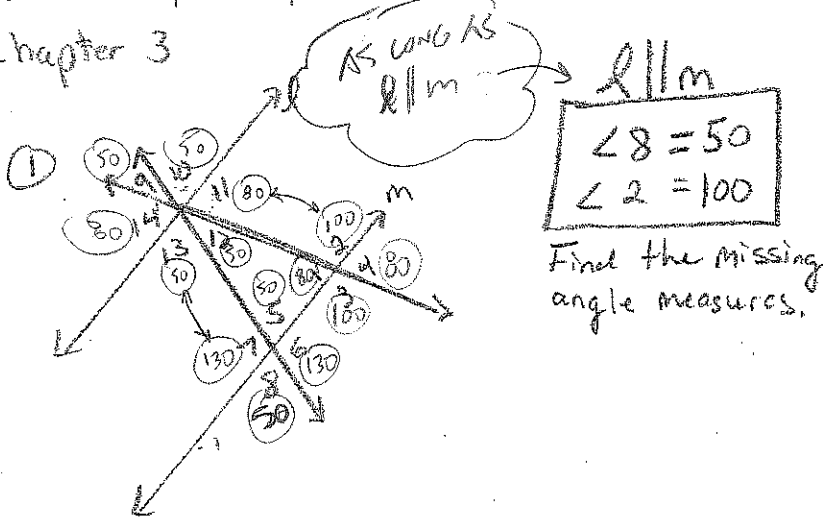 hapter 3
AS LONG AS
l || m
l
l || m
∠8 = 50
∠2 = 100
Find the missing
angle measures.
1
50
50
9
10
11
80
100
m
80
14
2
80
13
12
50
50
80
3
100
50
5
130
7
6
130
8
50